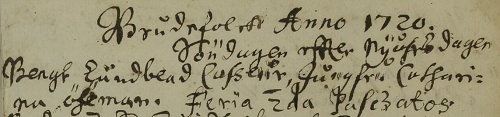 Brudefolck Anno 1720.
Söndagen effter Nyåhrs dagen
Bengt Lundblad, Jungfru Cathari=
na Öhman. Feria 2da Paschatos